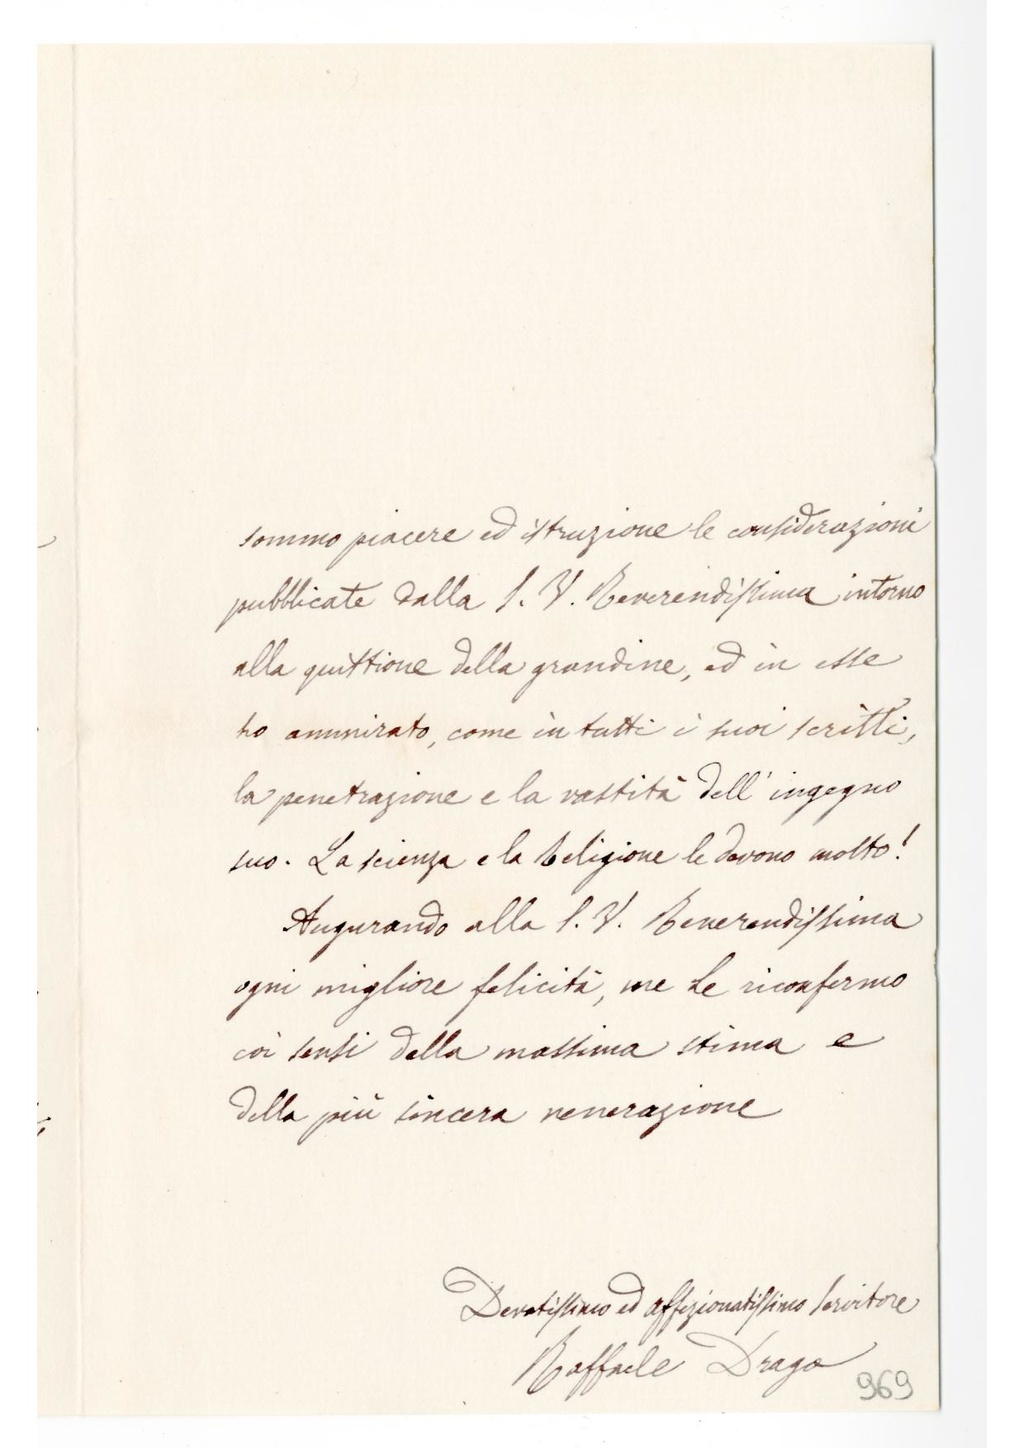 sommo piacere ed istruzione le considerazioni
pubblicate dalla S. V. Reverendissima intorno
alla quistione della grandine, ed in esse
ho ammirato, come in tutti i suoi scritti,
la penetrazione e la vastità dell'ingegno
suo. La scienza e la Religione le devono molto!
Augurando alla S. V. Reverendissima
ogni migliore felicità, me Le riconfermo
coi sensi della massima stima e
della più sincera venerazione
Devotissimo ed affezionatissimo servitore
Raffaele Drago
969